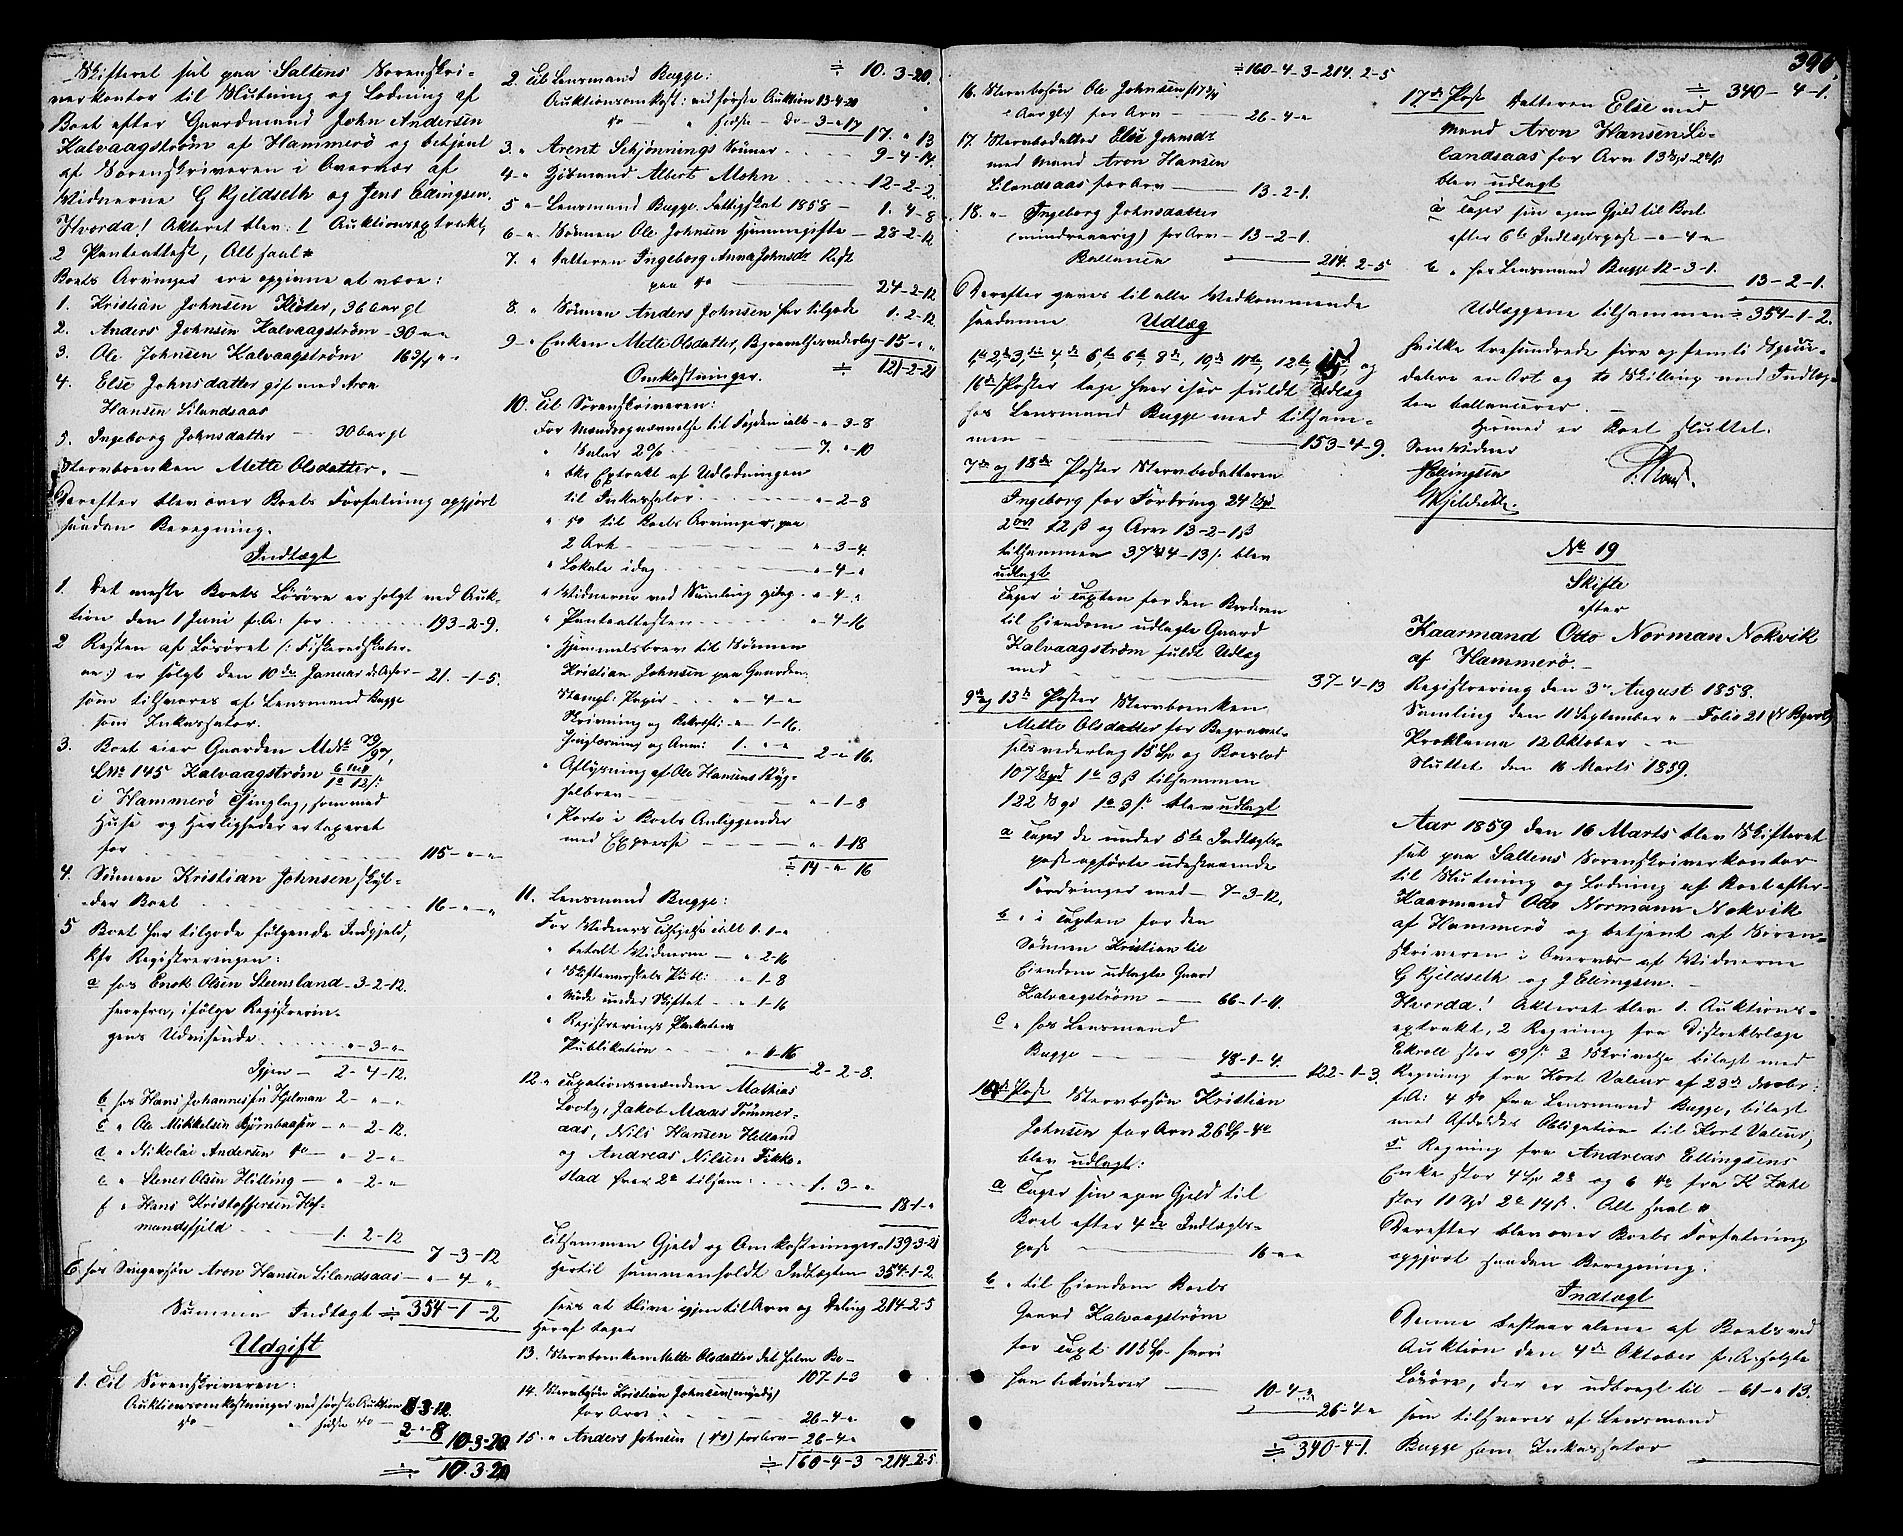 Skifteret sat paa Saltens Sorenskri-
verkontor til Slutning og Lodning af
Boet efter Gaardmand John Andersen
Kalvaagstrøm af Hammerø og betjent
af Sorenskriveren i Overvær af
Vidnerne G Kjeldseth og Jens Ellingsen.
Hvorda! Akteret blev: 1 Auktionsextrakt,
2 Panteattest, Alt saal.
Boets Arvinger ere opgivne at være:
1. Kristian Johnsen Kloster, 36 Aar gl
2. Anders Johnsen Kalvaagstrøm - 30 " "
3. Ole Johnsen Kalvaagstrøm 16 3/4 " "
4. Else Johnsdatter gift med Aron
Hansen Lilandsaas
5. Ingeborg Johnsdatter - 30 Aar gl
Stervboenken Mette Olsdatter. -
Derefter blev over Boets Forfatning opgjort
saadan Beregning.
Indtægt
1. Det meste Boets Løsøre er solgt ved Auk-
tion den 1 Juni f.A. for 193-2-9.
2 Resten af Løsøret (: Fiskeredskaber-
ne:) er solgt den 10de Januar d. A. for - 21.-1-5.
som tilsvares af Lensmand Bugge
som Inkassator.
3. Boet eier Gaarden M No 79/97,
L No 145 Kalvaagstrøm
i Hammerø Thinglag, som med
Huse og Herligheder er taxeret
for 115-"-"
4. Sønnen Kristian Johnsen skyl-
der Boet 16-"-"
5 Boet har tilgode følgende Indgjeld,
kfr Registreringen:
a hos Enok Olsen Steensland - 3-2-12.
hvorfra, ifølge Registrerin-
gens Udvisende "-3-"
Igjen - 2-4-12.
b hos Hans Johannesen Hjelman 2-"-"
c " Ole Mikkelsen Bjørnbaasen - "-2-12.
d " Nikolai Andersen do - "-2-"
e " Stener Olsen Hilling - "-2-"
f " Hans Kristoffersen Hof-
mandsfjeld 1.2-12
7-3-12
6. hos Svigersøn Aron Hansen Lilandsaas - "-4-"
Summa Indtægt ÷ 354-1-2
Udgift
1. Til Sorenskriveren:
Auktionsomkostninger ved første Auktion 8-3-12.
do - " sidste do - 2-"-8 10-3-20
÷ 10.3-20
÷ 10.3-20.
2 Til Lensmand Bugge:
Auktionsomkost: ved første Auktion 13-4-20
do - " sidste - do - 3-"-17 17."13
3. " Arent Schjønnings Sønner 9-4-14.
4 " Giæstmand Albert Mohn 12-2-2
5 " Lensmand Bugge. Fattigskat 1858 - 1.4-8
6 " Sønnen Ole Johnsen Hjemmegifte - 28-2-12
7. " Datteren Ingeborg Anna Johnsdr Rest
paa do 24-2-12
8. " Sønnen Anders Johnsen har tilgode 1.2-12
9 " Enken Mette Olsdatter, Begravelsesvederlag - 15-"-"
÷ 121-2-21
Omkostninger.
10. Til Sorenskriveren:
For Mændsopnævnelse til Fogden ialt - "-3-8
" Salær 2% 7."-10
" bkr Extrakt af Udlodningen
til Inkassator "-2-8
" do til Boets Arvinger, paa
2 Ark "-3-4.
" Lokale idag "-4-"
" Vidnerne ved Samling idag "-4-"
" Panteattesten "-4-16
" Hjemmelsbrev til Sønnen
Kristian Johnsen paa Gaarden
Stempl: Papir "-4-"
Skrivning og Bekræft: "-1-16.
Thinglæsning og Anm: 1."-" 2-"-16.
" Aflysning af Ole Hansens Byg-
selbrev "-1-8
" Porto i Boets Anliggender
med Expresse "-1-18
÷ 14-"-16
11. Lensmand Bugge:
For Vidners Tilsigelse ialt 1.1-"
" betalt Vidnerne - "-2-16
" Skiftevarsels Publ: - "-1-8
" Møde under Skiftet - "-1-16
" Registrerings Plakatens
Publikation "-1-16
2-2-8.
12 " Taxationsmændene Mathias
Lorty, Jakob Maas Tømmer-
aas, Nils Hansen Helland
og Andreas Nilsen Fikke-
stad hver 2 tilsam: 1.3-"
18-1-"
Tilsammen Gjeld og Omkostninger ÷ 139-3-21
Hertil sammenholdt Indtægten 354-1-2.
sees at blive igjen til Arv og Deling 214-2-5
Heraf tager
13. Stervboenken Mette Olsdatter det halve Bo -
107-1-3
14. Stervbosøn Kristian Johnsen (myndig)
for Arv 26-4-"
15. " Anders Johnsen (do) for Arv - 26-4-"
÷ 160-4-3 -214-2-5.
÷ 160-4-3-214.2-5
16. Stervbosøn Ole Johnsen (17 3/4
Aar gl) for Arv 26-4-"
17. Stervbodatter Else Johnsdr
med Mand Aron Hansen
Lilandsaas for Arv 13-2-1.
18. " Ingeborg Johnsdatter
(mindreaarig) for Arv - 13-2-1.
Ballance 214.2-5
Derefter gaves til alle Vedkommende
saadanne Udlæg
1ste 2de 3die 4de 5te 6te 8de, 10de 11te, 12te, 15 og
16de Poster tage hver især fuldt Udlæg
hos Lensmand Bugge med tilsam-
men 153-4-9.
7de og 18de Poster Stervbodatteren
Ingeborg for Fordring 24 Spd
2 ort 12 ß og Arv 13-2-1 ß
tilsammen 37 4-13 ß. blev
udlagt
Tager i Taxten for den Broderen
til Eiendom udlagte Gaard
Kalvaagstrøm fuldt Udlæg
med 37-4-13
9de og 13de Poster Stervboenken
Mette Olsdatter for Begravel-
sesvederlag 15 Sp og Boeslod
107 Spd 1 3 ß tilsammen
122 Spd 1 3 ß blev udlagt
a Tager de under 5te Indtægts-
post opførte udestaaende
Fordringer med - 7-3-12.
b " i Taxten for den
Sønnen Kristian til
Eiendom udlagte Gaard
Kalvaagstrøm 66-1-11.
c " hos Lensmand
Bugge 48-1-4.
122-1-3.
14de Post Stervbosøn Kristian
Johnsen for Arv 26 Sp-4
blev udlagt:
a Tager sin egen Gjeld til
Boet efter 4de Indtægts-
post 16 " "
b " til Eiendom Boets
Gaard Kalvaagstrøm
for Taxt: 115 Sp hvori
han bekvitterer 10-4-"
26-4-"
÷ 340-4-1.
390.
÷ 340-4-1.
17de Post Datteren Else med
Mand Aron Hansen Li-
landsaas for Arv 13 Spd-2 1 ß
blev udlagt
a Tager sin egen Gjeld til Boet
efter 6te Indtægtspost - "-4-"
b " hos Lensmand Bugge 12-3-1.
13-2-1.
Udlæggene tilsammen ÷ 354-1-2.
hvilke trehundrede fire og femti Specie-
daler en Ort og to Skilling med Indtæg-
ten ballancerer. -
Hermed er Boet sluttet.
Som Vidner
JEllingsen
GKjeldseth.
No 19
Skifte
efter
Kaarmand Otto Norman Nokvik
af Hammerø. -
Registrering den 3die August 1858.
Samling den 11 September " - Folio 21
Proklama 12 Oktober - "
Sluttet den 16 Marts 1859.
Aar 1859 den 16 Marts blev Skifteret
sat paa Saltens Sorenskriverkontor
til Slutning og Lodning af Boet efter
Kaarmand Otto Normann Nokvik
af Hammerø og betjent af Soren-
skriveren i Overvær af Vidnerne
G Kjeldseth og J Ellingsen. -
Hvorda! Akteret blev 1. Auktions-
extrakt, 2 Regning fra Distriktslæge
Ekroll stor 69 ß. 3 Skrivelse bilagt med
Regning fra Kort Valeur af 23de Decbr:
f.A: 4 do fra Lensmand Bugge, bilagt
med Afdødes Obligation til Kort Valeur,
5 Regning fra Andreas Ellingsens
Enke stor 4 Sp 2 og 6 do fra K Zahl
stor 11 Spd 2 14 ß. Alt saal.
Derefter blev over Boets Forfatning
opgjort saadan Beregning:
Indtægt
Denne bestaar alene af Boets ved
Auktion den 4de Oktober f.A. solgte
Løsøre, der er udbragt til - 61-"-13.
som tilsvares af Lensmand
Bugge som Inkassator